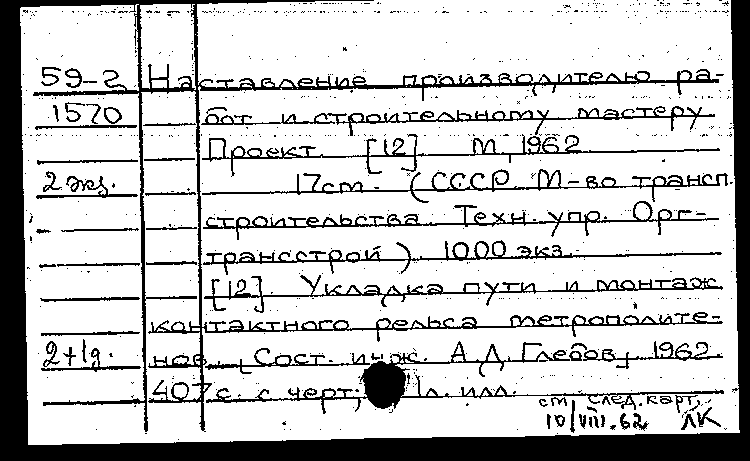 59-2 Наставление производителю ра-
1570 бот и строительному мастеру
Проект. [12]. М., 1962
2 экз. 17cm. (СССР. М-во трансп.
строительства. Техн. упр. Орг-
трансстрой). 1000 экз.
[12]. Укладка пути и монтаж
контактного рельса метрополите-
2+1д. нов. [Сост. инж. А.Д. Глебов] 1962.
407 с. с черт; 1л. илл.
см. след. карт.
10/VIII.62 ЛК